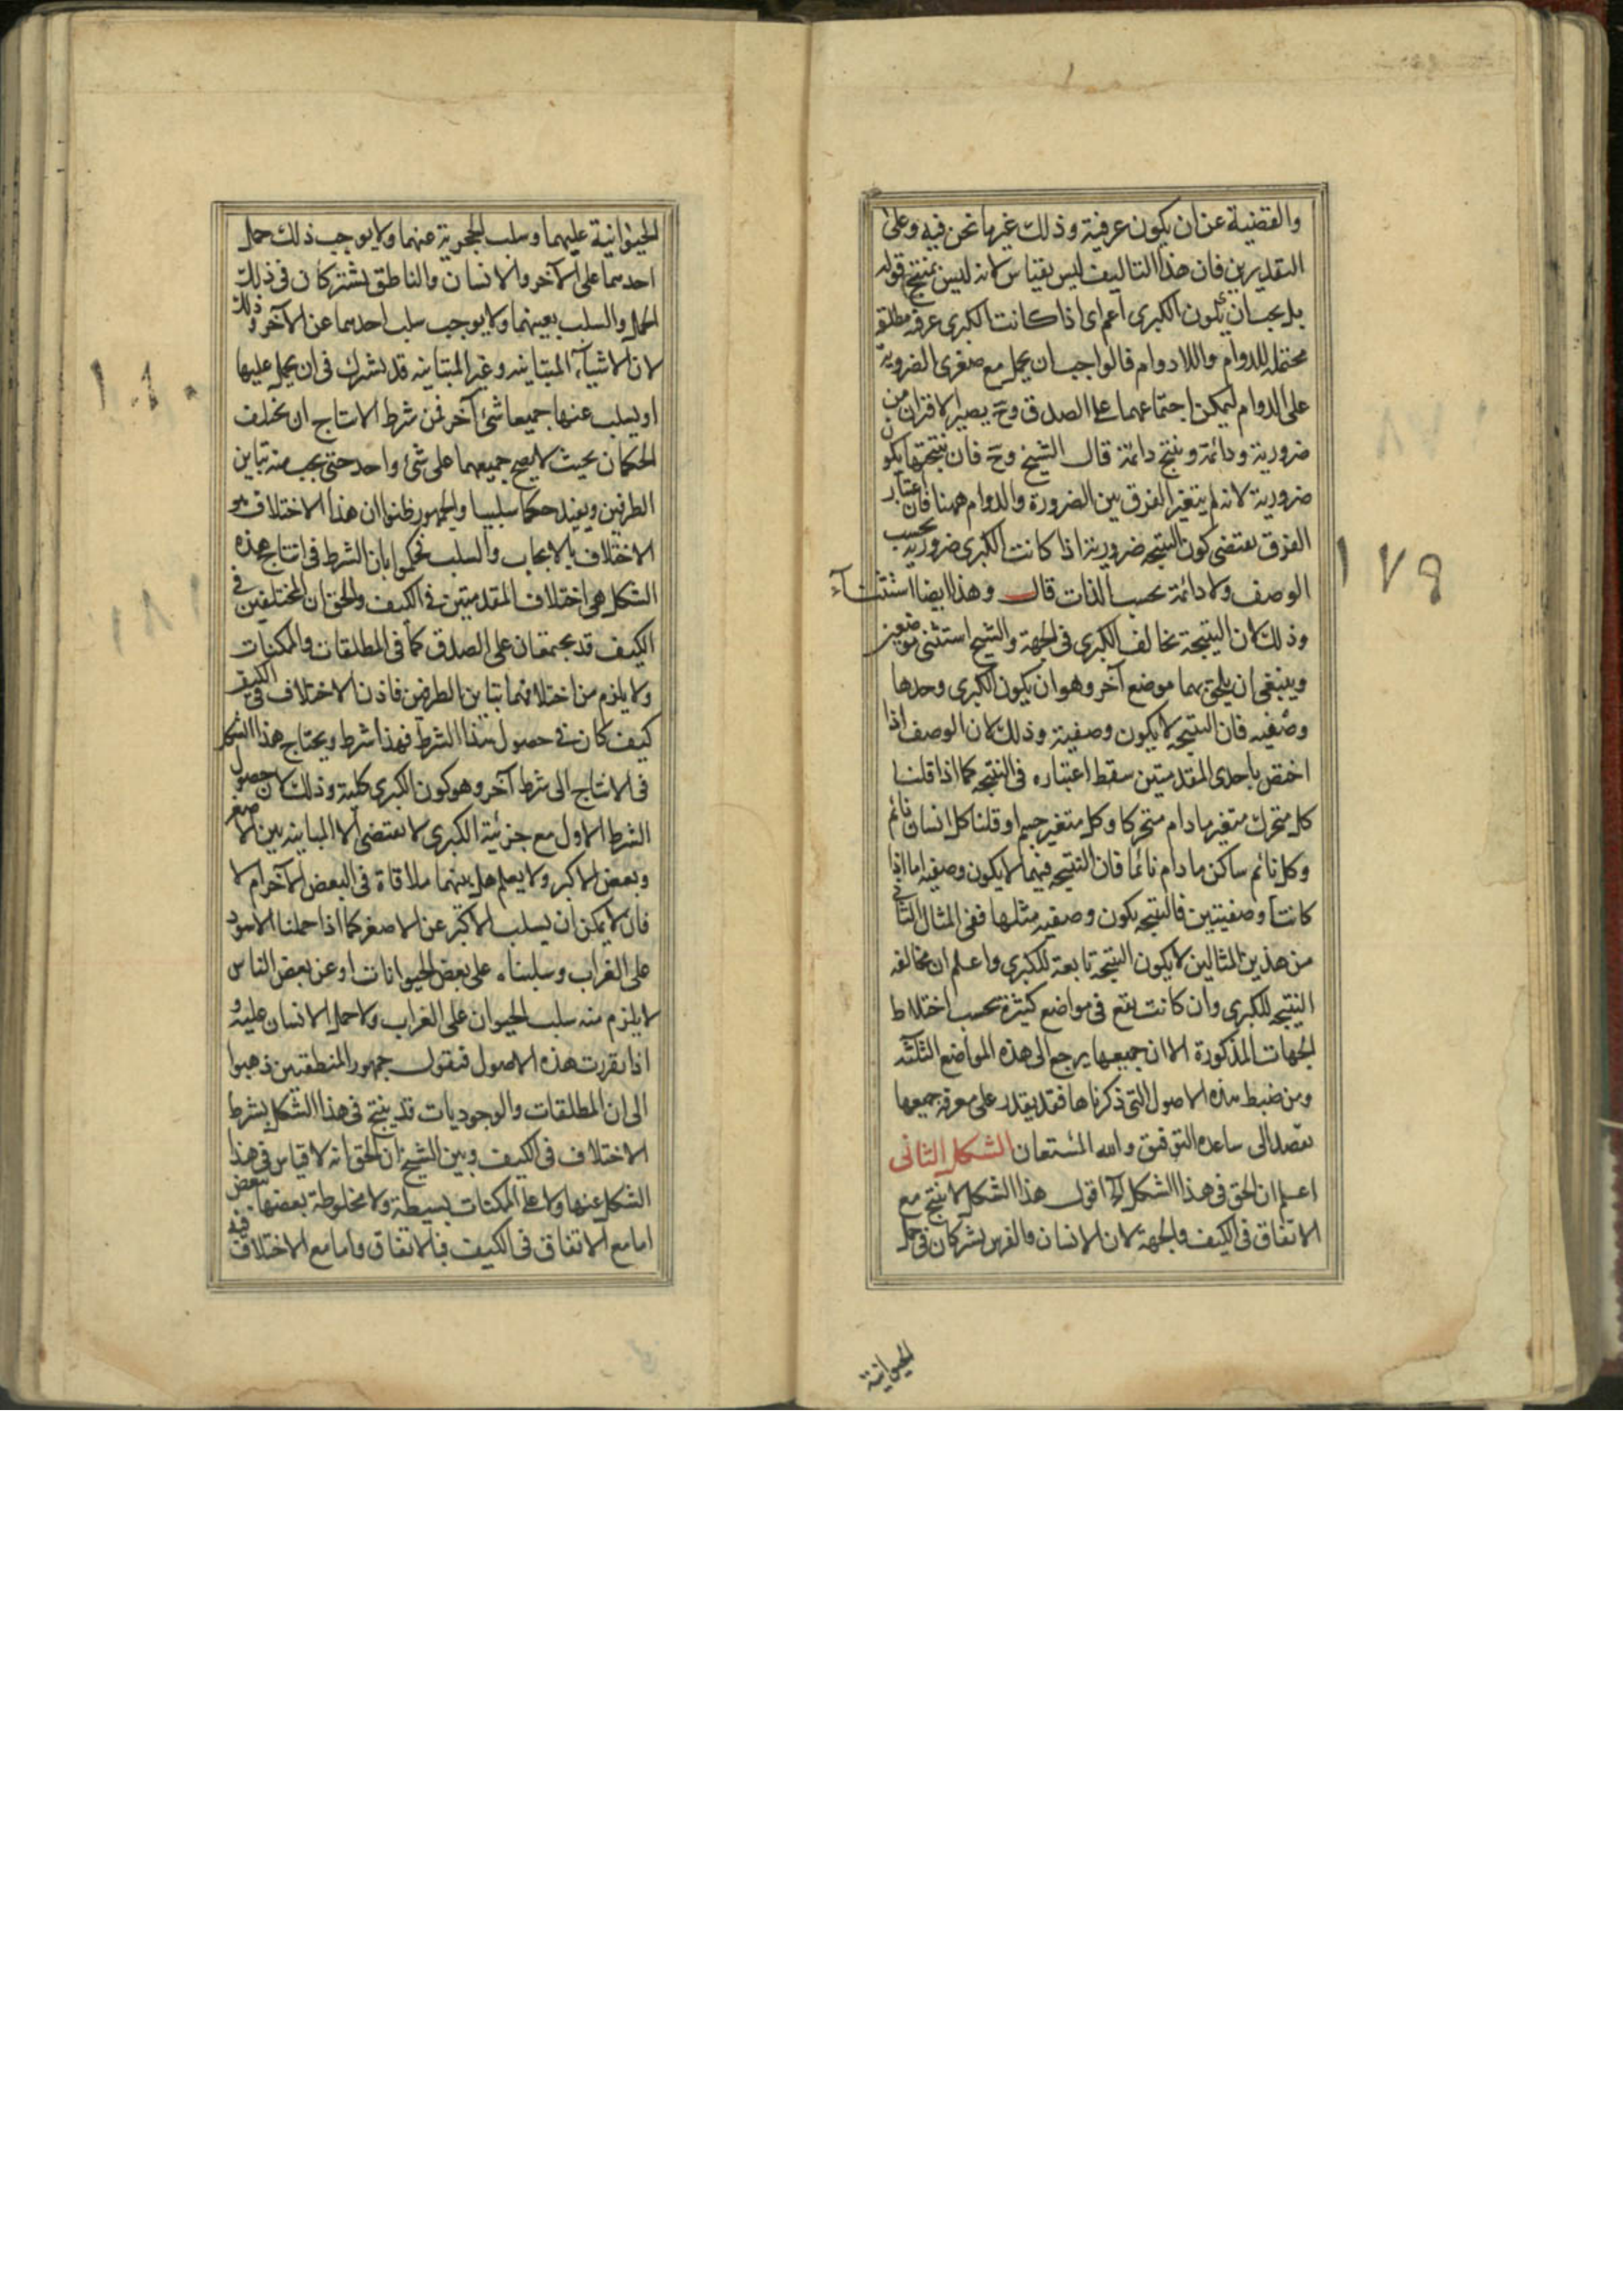 والقضية عن ان يكون عرفية وذلك غير ما نحن فيه وعلى
التقديرين فان هذا التاليف ليس بقياس لانه ليس بمنتج قوله
بل يجب ان يكون الكبرى اعم اى اذا كانت الكبرى عرفية مطلقة
محتملة للدوام واللادوام فالواجب ان يحمل مع صغرى الضرورية
على الدوام ليمكن اجتماعهما على الصدق وح يصير الاقتران من
ضرورية ودائمة وينتج دائمة قال الشيخ وح فان نتيجتها يكون
ضرورية لانه لم يتغير الفرق بين الضرورة والدوام ههنا فان اعتبار
الفرق يقتضى كون النتيجه ضرورية اذا كانت الكبرى ضرورية بحسب
الوصف ولا دائمة بحسب الذات قال وهذا ايضا استثناء
وذلك لان النتيجة تخالف الكبرى فى الجهة والشيخ استثنى موضعين
وينبغى ان يلحق بهما موضع آخر وهو ان يكون الكبرى وحدها
وصفيه فان النتيجه لا يكون وصفية وذلك لان الوصف اذا
اختص باحدى المقدمتين سقط اعتباره فى النتيجه كما اذا قلنا
كل متحرك متغير مادام متحركا وكل متغير جسم او قلنا كل انسان نائم
وكل نائم ساكن مادام نائما فان النتيجه فيهما لا يكون وصفيه اما اذا
كانتا وصفيتين فالنتيجه يكون وصفيه مثلها ففى المثال الثانى
من هذين المثالين لا يكون النتيجة تابعة للكبرى واعلم ان مخالفه
النتيجه للكبرى وان كانت يقع فى مواضع كثيرة بحسب اختلاط
الجهات المذكورة الا ان جميعها يرجع الى هذه المواضع الثلثه
ومن ضبط هذه الاصول التى ذكرناها فقد يقدر على معرفة جميعها
مفصلا ان ساعده التوفيق والله المستعان الشكل الثانى
اعلم ان الحق فى هذا الشكل اقول هذا الشكل لا ينتج مع
الاتفاق فى الكيف والجهة لان الانسان والفرس يشتركان فى حمل
الحيوانية
١٧٩
الحيوانية عليهما وسلب الحجرية عنهما ولا يوجب ذلك حمل
احدهما على الآخر والانسان والناطق يشتركان فى ذلك
الحمل والسلب بعينهما ولا يوجب سلب احدهما عن الآخر وذلك
لان الاشياء المتباينه وغير المتباينه قد يشترك فى ان يحمل عليها
او يسلب عنها جميعا شئ آخر فمن شرط الانتاج ان يختلف
الحكمان بحيث لا يصح جميعهما على شئ واحد حتى يجب منه تباين
الطرفين ويفيد حكما سلبيا والجمهور ظنوا ان هذا الاختلاف هو
الاختلاف بالايجاب والسلب فحكموا بان الشرط فى انتاج هذه
الشكل هى اختلاف المقدمتين فى الكيف والحق ان المختلفين فى
الكيف قد يجتمعان على الصدق كما فى المطلقات والممكنات
ولا يلزم من اختلافهما تباين الطرفين فاذن الاختلاف فى الكيف
كيف كان فى حصول هذا الشرط فهذا شرط ويحتاج هذا الشكل
فى الانتاج الى شرط آخر وهو كون الكبرى كلية وذلك لان حصول
الشرط الاول مع جزئية الكبرى لا يقتضى الا المباينه بين الاصغر
وبعض الاكبر ولا يعلم هل بينهما ملاقاة فى البعض الآخر ام لا
فان لا يمكن ان يسلب الاكبر عن الاصغر كما اذا حملنا الاسود
على الغراب وسلبناه على بعض الحيوانات او عن بعض الناس
لا يلزم منه سلب الحيوان على الغراب ولا حمل الانسان عليه و
اذا تقررت هذه الاصول فنقول جمهور المنطقيين ذهبوا
الى ان المطلقات والوجوديات قد ينتج فى هذا الشكل بشرط
الاختلاف فى الكيف وبين الشيخ ان الحق انه لا قياس فى هذا
الشكل عنها ولا على الممكنات بسيطة ولا مخلوطة بعضها ببعض
اما مع الاتفاق فى الكيف فبالاتفاق واما مع الاختلاف فيه